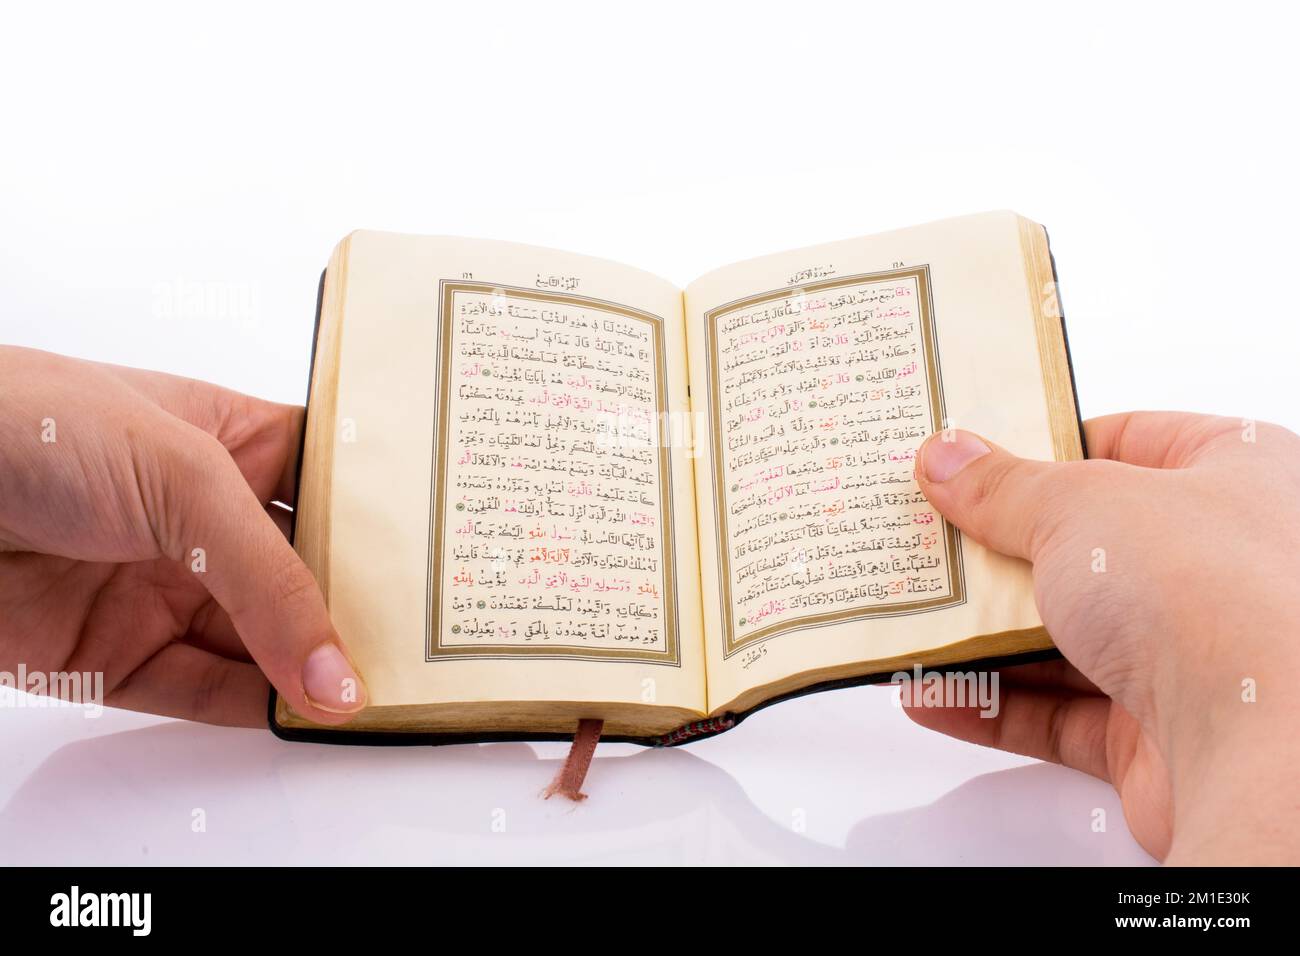 ١٦٨
سُورَةُ الْاَعْرَافِ
وَلَمَّا رَجَعَ مُوسٰى اِلٰى قَوْمِهٖ غَضْبَانَ اَسِفًا قَالَ بِئْسَمَا خَلَفْتُمُونٖي
مِنْ بَعْدٖي اَعَجِلْتُمْ اَمْرَ رَبِّكُمْ وَاَلْقَى الْاَلْوَاحَ وَاَخَذَ بِرَاْسِ
اَخٖيهِ يَجُرُّهُٓ اِلَيْهِ قَالَ ابْنَ اُمَّ اِنَّ الْقَوْمَ اسْتَضْعَفُونٖي
وَكَادُوا يَقْتُلُونَنٖي فَلَا تُشْمِتْ بِيَ الْاَعْدَٓاءَ وَلَا تَجْعَلْنٖي مَعَ
الْقَوْمِ الظَّالِمٖينَ قَالَ رَبِّ اغْفِرْ لٖي وَلِاَخٖي وَاَدْخِلْنَا فٖي
رَحْمَتِكَ وَاَنْتَ اَرْحَمُ الرَّاحِمٖينَ اِنَّ الَّذٖينَ اتَّخَذُوا الْعِجْلَ
سَيَنَالُهُمْ غَضَبٌ مِنْ رَبِّهِمْ وَذِلَّةٌ فِي الْحَيٰوةِ الدُّنْيَا
وَكَذٰلِكَ نَجْزِي الْمُفْتَرٖينَ وَالَّذٖينَ عَمِلُوا السَّيِّـَٔاتِ ثُمَّ تَابُوا
بَعْدِهَا وَاٰمَنُٓوا اِنَّ رَبَّكَ مِنْ بَعْدِهَا لَغَفُورٌ رَحٖيمٌ
سَكَتَ عَنْ مُوسَى الْغَضَبُ اَخَذَ الْاَلْوَاحَ وَفٖي نُسْخَتِهَا
هُدًى وَرَحْمَةٌ لِلَّذٖينَ هُمْ لِرَبِّهِمْ يَرْهَبُونَ وَاخْتَارَ مُوسٰى
قَوْمَهُ سَبْعٖينَ رَجُلًا لِمٖيقَاتِنَا فَلَمَّٓا اَخَذَتْهُمُ الرَّجْفَةُ قَالَ
رَبِّ لَوْ شِئْتَ اَهْلَكْتَهُمْ مِنْ قَبْلُ وَاِيَّايَ اَتُهْلِكُنَا بِمَا فَعَلَ
السُّفَهَٓاءُ مِنَّا اِنْ هِيَ اِلَّا فِتْنَتُكَ تُضِلُّ بِهَا مَنْ تَشَٓاءُ وَتَهْدٖي
مَنْ تَشَٓاءُ اَنْتَ وَلِيُّنَا فَاغْفِرْ لَنَا وَارْحَمْنَا وَاَنْتَ خَيْرُ الْغَافِرٖينَ
وَاكْتُبْ
اَلْجُزْءُ التَّاسِعُ
١٦٩
وَاكْتُبْ لَنَا فٖي هٰذِهِ الدُّنْيَا حَسَنَةً وَفِي الْاٰخِرَةِ
اِنَّا هُدْنَٓا اِلَيْكَ قَالَ عَذَابٖٓي اُصٖيبُ بِهٖ مَنْ اَشَٓاءُ
وَرَحْمَتٖي وَسِعَتْ كُلَّ شَيْءٍ فَسَاَكْتُبُهَا لِلَّذٖينَ يَتَّقُونَ
وَيُؤْتُونَ الزَّكٰوةَ وَالَّذٖينَ هُمْ بِاٰيَاتِنَا يُؤْمِنُونَ اَلَّذٖينَ
يَتَّبِعُونَ الرَّسُولَ النَّبِيَّ الْاُمِّيَّ الَّذٖي يَجِدُونَهُ مَكْتُوبًا
عِنْدَهُمْ فِي التَّوْرٰيةِ وَالْاِنْجٖيلِ يَاْمُرُهُمْ بِالْمَعْرُوفِ
وَيَنْهٰيهُمْ عَنِ الْمُنْكَرِ وَيُحِلُّ لَهُمُ الطَّيِّبَاتِ وَيُحَرِّمُ
عَلَيْهِمُ الْخَبَٓائِثَ وَيَضَعُ عَنْهُمْ اِصْرَهُمْ وَالْاَغْلَالَ الَّتٖي
كَانَتْ عَلَيْهِمْ فَالَّذٖينَ اٰمَنُوا بِهٖ وَعَزَّرُوهُ وَنَصَرُوهُ
وَاتَّبَعُوا النُّورَ الَّذٖٓي اُنْزِلَ مَعَهُٓ اُولٰٓئِكَ هُمُ الْمُفْلِحُونَ
قُلْ يَٓا اَيُّهَا النَّاسُ اِنّٖي رَسُولُ اللّٰهِ اِلَيْكُمْ جَمٖيعًا الَّذٖي
لَهُ مُلْكُ السَّمٰوَاتِ وَالْاَرْضِ لَٓا اِلٰهَ اِلَّا هُوَ يُحْيٖي وَيُمٖيتُ فَاٰمِنُوا
بِاللّٰهِ وَرَسُولِهِ النَّبِيِّ الْاُمِّيِّ الَّذٖي يُؤْمِنُ بِاللّٰهِ
وَكَلِمَاتِهٖ وَاتَّبِعُوهُ لَعَلَّكُمْ تَهْتَدُونَ وَمِنْ
قَوْمِ مُوسٰٓى اُمَّةٌ يَهْدُونَ بِالْحَقِّ وَبِهٖ يَعْدِلُونَ
alamy
Image ID: 2M1E30K
www.alamy.com